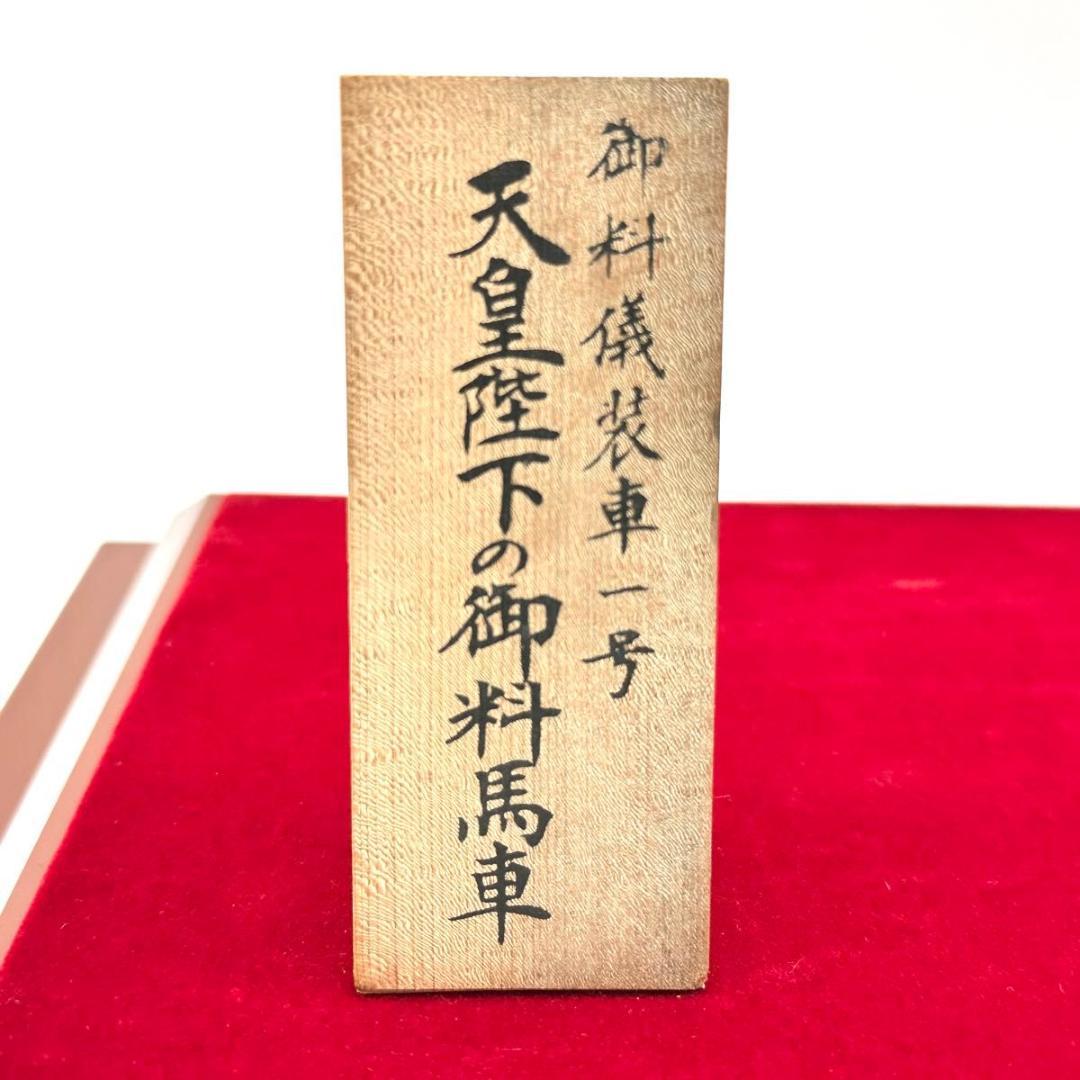 御料儀装車一号
天皇陛下の御料馬車